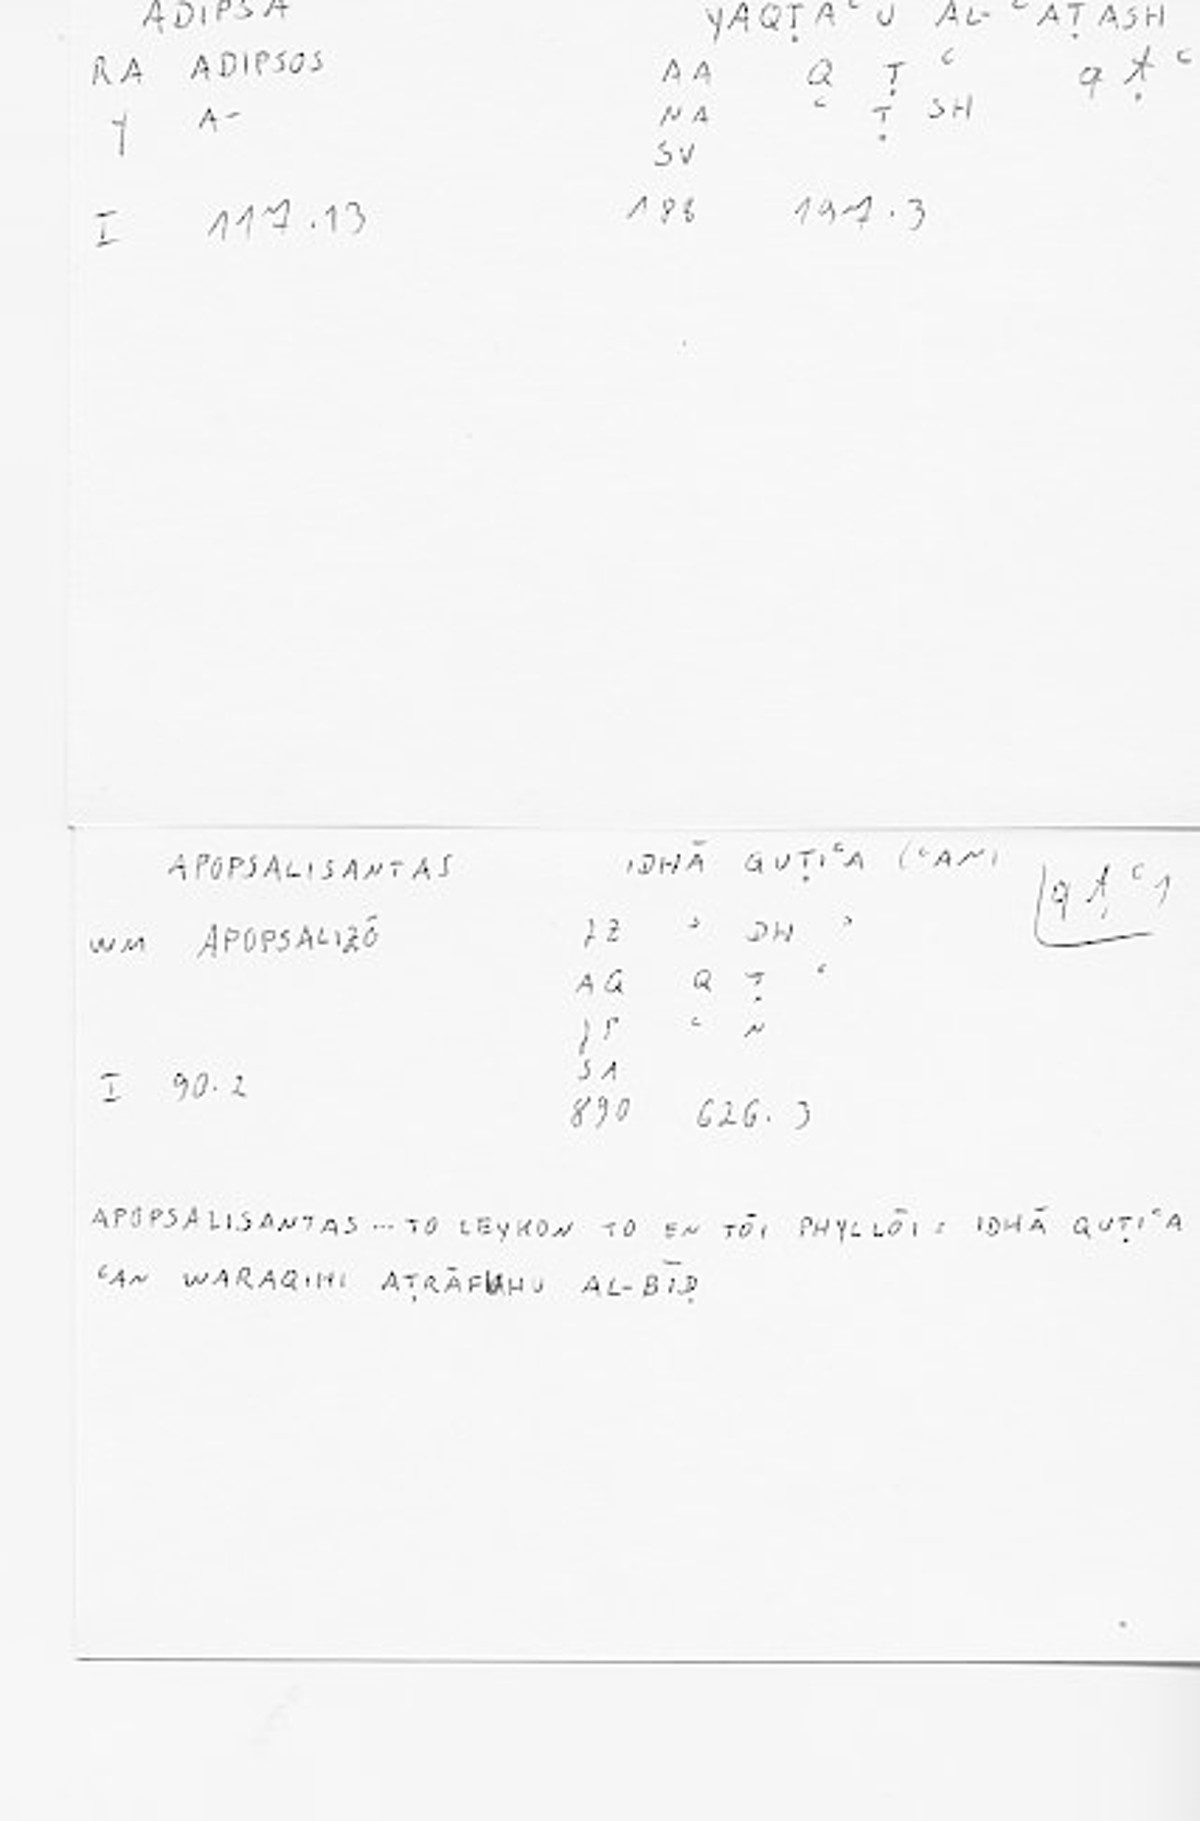 ADIPSA YAQṬAʿU AL-ʿAṬASH
RA ADIPSOS AA Q Ṭ ʿ q ṭ ʿ
Y A- NA ʿ Ṭ SH
SV
I 117.13 188 197.3
APOPSALISANTAS IDHĀ QUṬIʿA (ʿAN)
WM APOPSALIZŌ ZZ ʾ DH ʾ q ṭ ʿ 1
AQ Q Ṭ ʿ
ʿ N
SA
I 90.2
890 626.3
APOPSALISANTAS ... TO LEYKON TO EN TŌI PHYLLŌI : IDHĀ QUṬIʿA
ʿAN WARAQIHI AṬRĀFUHU AL-BĪḌ